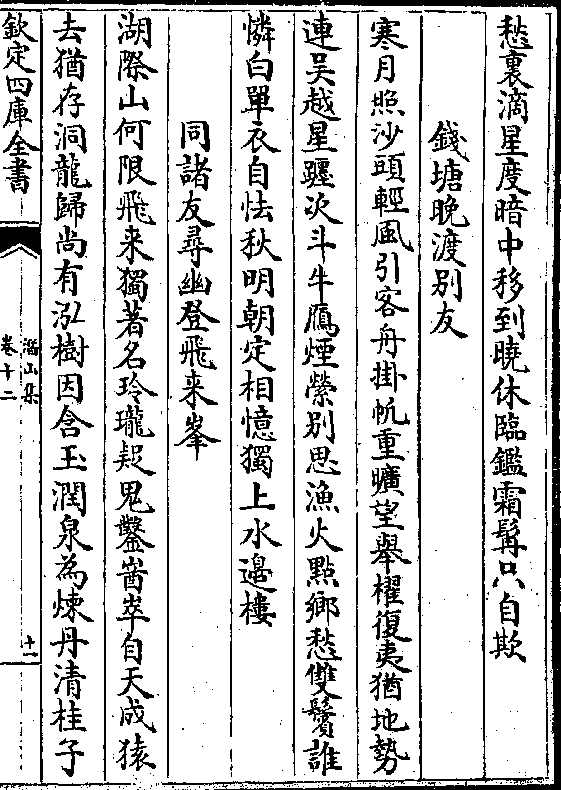 愁裏滴星度暗中移到曉休臨鑑霜髯只自欺
錢塘晚渡别友
寒月照沙頭輕風引客舟掛帆重曠望舉櫂復夷猶地勢
連吴越星躔次斗牛鴈煙縈别思漁火點鄉愁雙鬢誰
憐白單衣自怯秋明朝定相憶獨上水邊樓
同諸友尋幽登飛来峯
湖際山何限飛来獨著名玲瓏疑鬼鑿崷崒自天成猿
去猶存洞龍歸尚有泓樹因含玉潤泉為煉丹清桂子
欽定四庫全書
潛山集
卷十二
十一